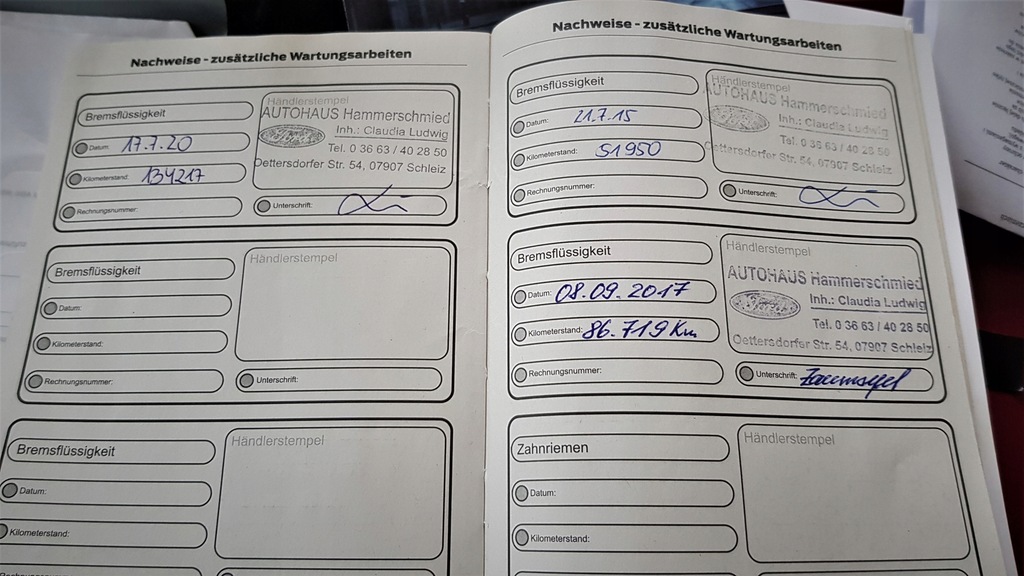 Nachweise - zusätzliche Wartungsarbeiten
Bremsflüssigkeit
Datum: 17.7.20
Kilometerstand: 134217
Rechnungsnummer:
Händlerstempel
AUTOHAUS Hammerschmied
Inh.: Claudia Ludwig
Tel. 0 36 63 / 40 28 50
Oettersdorfer Str. 54, 07907 Schleiz
Unterschrift:
Bremsflüssigkeit
Datum:
Kilometerstand:
Rechnungsnummer:
Händlerstempel
Unterschrift:
Bremsflüssigkeit
Datum:
Kilometerstand:
Rechnungsnummer:
Händlerstempel
Nachweise - zusätzliche Wartungsarbeiten
Bremsflüssigkeit
Datum: 21.7.15
Kilometerstand: 51950
Rechnungsnummer:
Händlerstempel
AUTOHAUS Hammerschmied
Inh.: Claudia Ludwig
Tel. 0 36 63 / 40 28 50
Oettersdorfer Str. 54, 07907 Schleiz
Unterschrift:
Bremsflüssigkeit
Datum: 08.09.2017
Kilometerstand: 86.719 Km
Rechnungsnummer:
Händlerstempel
AUTOHAUS Hammerschmied
Inh.: Claudia Ludwig
Tel. 0 36 63 / 40 28 50
Oettersdorfer Str. 54, 07907 Schleiz
Unterschrift:
Zahnriemen
Datum:
Kilometerstand:
Händlerstempel